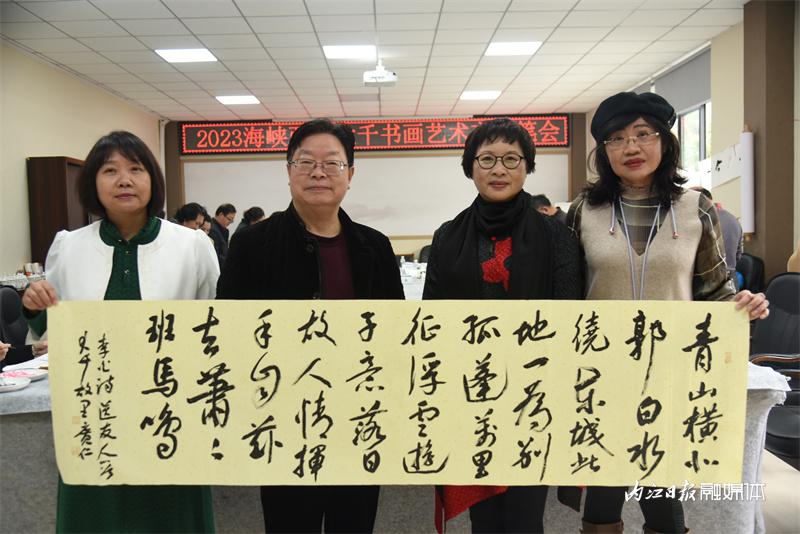 2023海峡
千书画艺术
笔会
青山横北
郭白水
绕东城此
地一为别
孤蓬万里
征浮云游
子意落日
故人情挥
手自兹
去萧〻
班马鸣
李白诗送友人
大千故里
内江日报融媒体